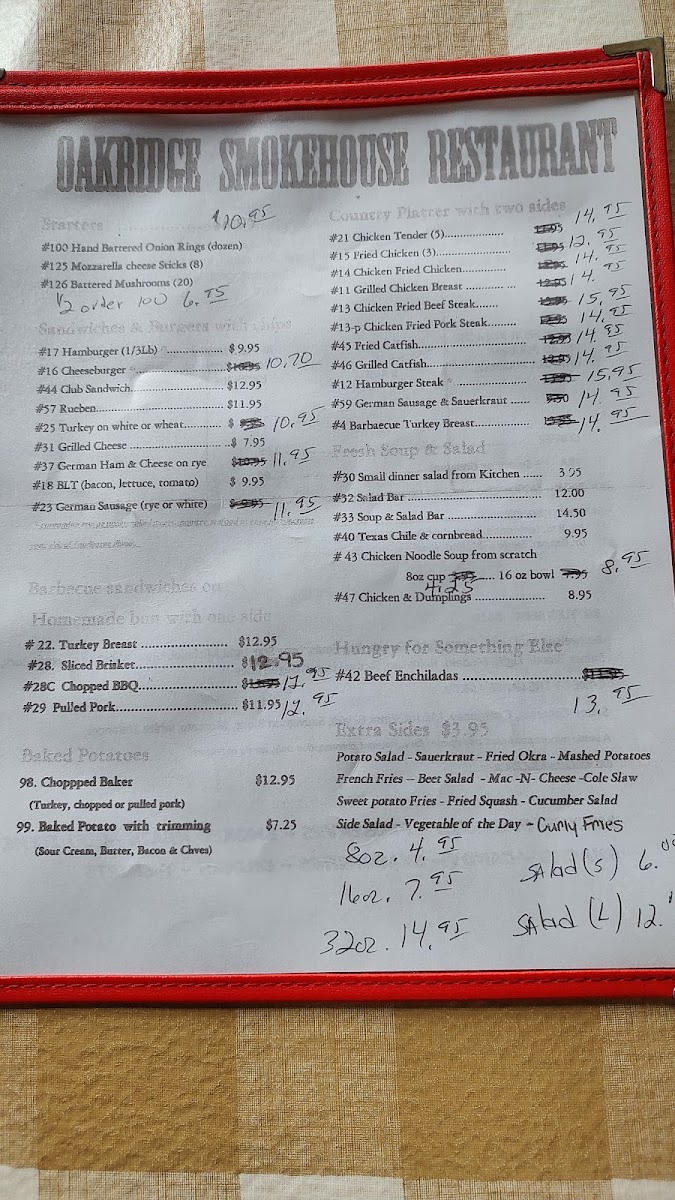 OAKRIDGE SMOKEHOUSE RESTAURANT
Starters $10.95
#100 Hand Battered Onion Rings (dozen)
#125 Mozzarella cheese Sticks (8)
#126 Battered Mushrooms (20)
1/2 order 100 6.95
Sandwiches & Burgers with chips
#17 Hamburger (1/3Lb) ................ $ 9.95
#16 Cheeseburger 10.70
#44 Club Sandwich........................ $12.95
#57 Rueben................................ $11.95
#25 Turkey on white or wheat.......... $ 10.95
#31 Grilled Cheese .......................... $ 7.95
#37 German Ham & Cheese on rye $10.95 11.95
#18 BLT (bacon, lettuce, tomato) $ 9.95
#23 German Sausage (rye or white) $9.95 11.95
Barbecue sandwiches on
Homemade bun with one side
# 22. Turkey Breast ...................... $12.95
#28. Sliced Brisket......................... $12.95
#28C Chopped BBQ......................... 12.95
#29 Pulled Pork............................ $11.95 12.95
Baked Potatoes
98. Choppped Baker $12.95
(Turkey, chopped or pulled pork)
99. Baked Potato with trimming $7.25
(Sour Cream, Butter, Bacon & Chves)
Country Platter with two sides
#21 Chicken Tender (5)................. 14.95
#15 Fried Chicken (3)..................... 12.95
#14 Chicken Fried Chicken............. 14.95
#11 Grilled Chicken Breast ............ ... 14.95
#13 Chicken Fried Beef Steak....... 15.95
#13-p Chicken Fried Pork Steak........ 14.95
#45 Fried Catfish......................... 14.95
#46 Grilled Catfish........................ 14.95
#12 Hamburger Steak 15.95
#59 German Sausage & Sauerkraut ...... 14.95
#4 Barbaecue Turkey Breast............. 14.95
Fresh Soup & Salad
#30 Small dinner salad from Kitchen ...... 3.95
#32 Salad Bar ..................................... 12.00
#33 Soup & Salad Bar ........................... 14.50
#40 Texas Chile & cornbread............... 9.95
# 43 Chicken Noodle Soup from scratch
8oz cup 4.25 .... 16 oz bowl 7.95 8.95
#47 Chicken & Dumplings .................... 8.95
Hungry for Something Else
#42 Beef Enchiladas ....................................
13.95
Extra Sides $3.95
Potato Salad - Sauerkraut - Fried Okra - Mashed Potatoes
French Fries – Beet Salad - Mac -N- Cheese -Cole Slaw
Sweet potato Fries - Fried Squash - Cucumber Salad
Side Salad - Vegetable of the Day - Curly Fries
8oz. 4.95
16oz. 7.95
32oz. 14.95
Salad (S) 6.00
Salad (L) 12.